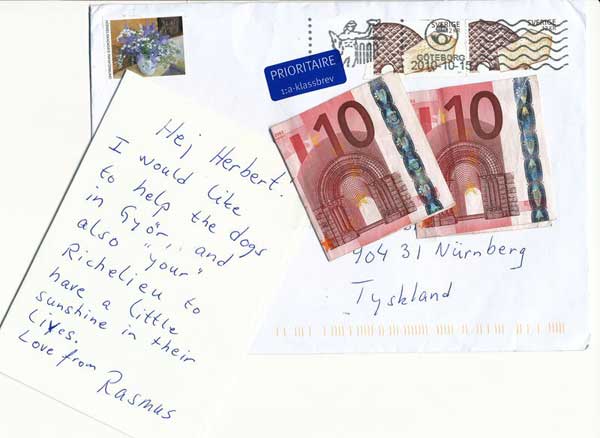 SVERIGE
SVERIGE
GÖTEBORG
2010-10-15
PRIORITAIRE
1:a-klassbrev
10
10
904 31 Nürnberg
Tyskland
Hej Herbert.
I would like
to help the dogs
in Győr, and
also "your"
Richelieu to
have a little
sunshine in their
lives.
Love from
Rasmus